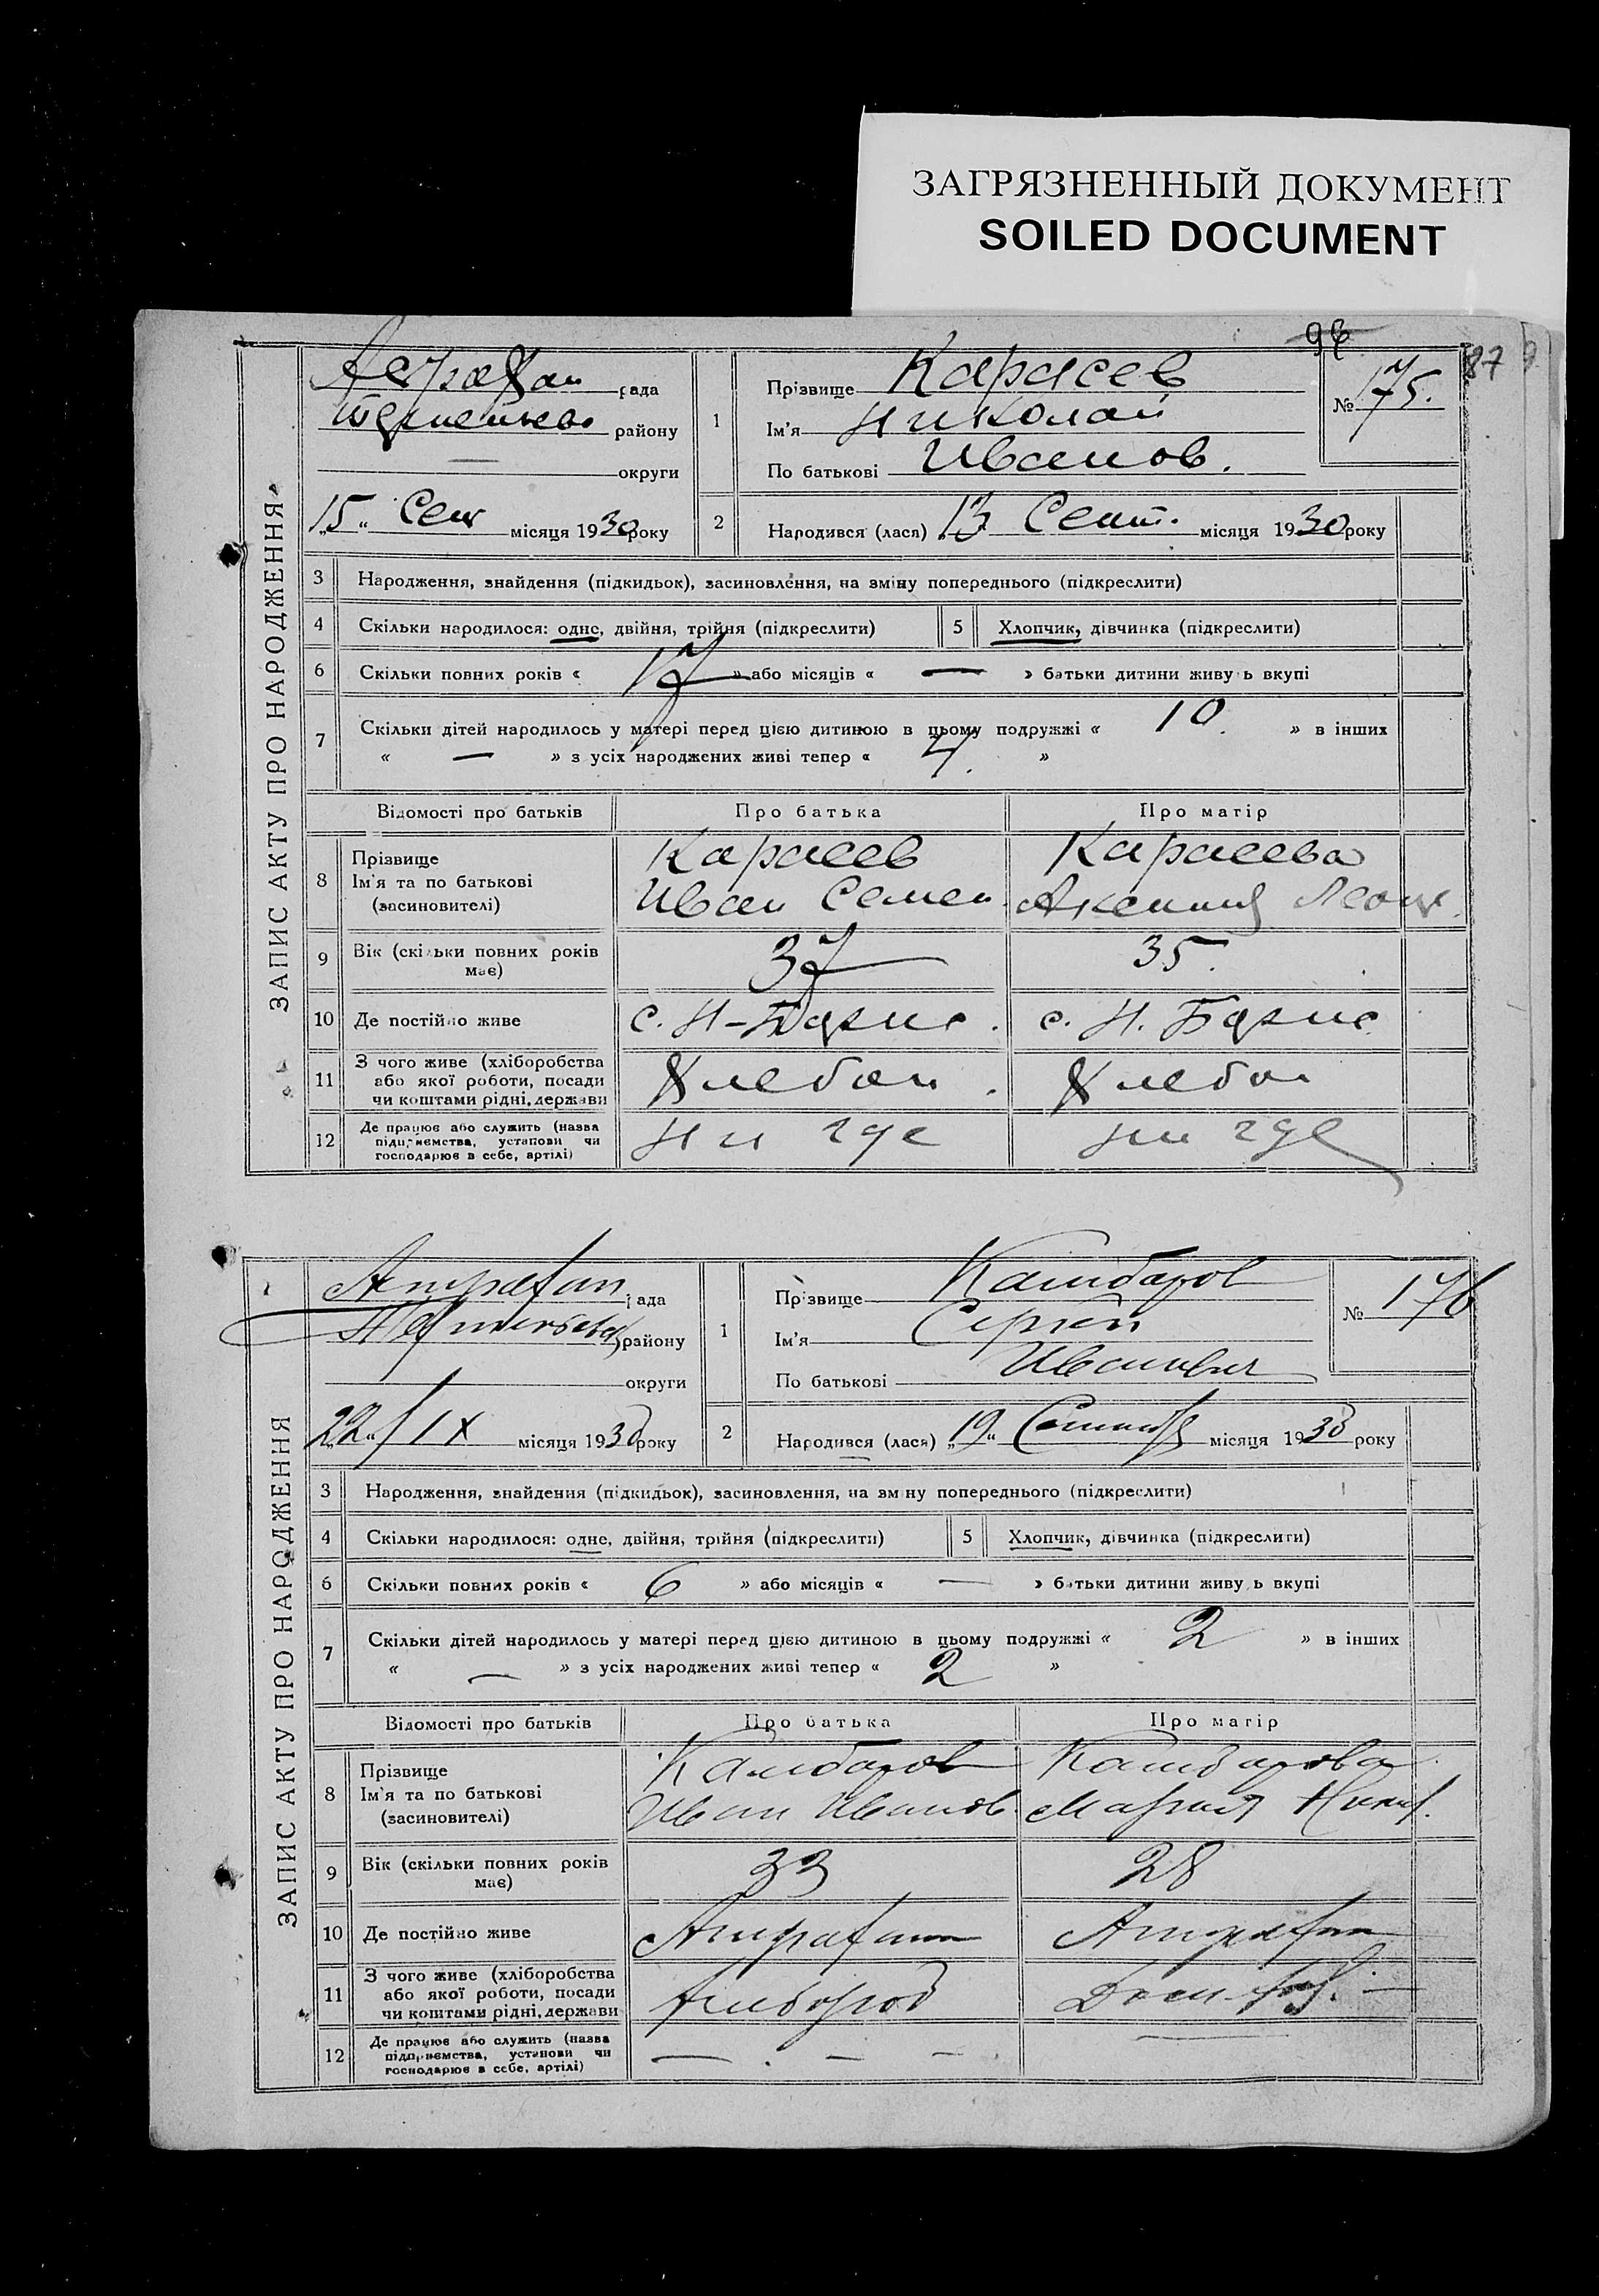 ЗАГРЯЗНЕННЫЙ ДОКУМЕНТ
SOILED DOCUMENT
96
87
ЗАПИС АКТУ ПРО НАРОДЖЕННЯ
Астрахан рада
району
округи
„15“ Сен місяця 1930 року
1
Прізвище Карасев
Ім'я Николай
По батькові Иванов.
№ 175.
2 Народився (лася) „13 Сент. місяця 1930 року
3 Народження, знайдення (підкидьок), засиновлення, на зміну попереднього (підкреслити)
4 Скільки народилося: одне, двійня, трійня (підкреслити) 5 Хлопчик, дівчинка (підкреслити)
6 Скільки повних років « 17 » або місяців « — » батьки дитини живуть вкупі
7 Скільки дітей народилось у матері перед цією дитиною в цьому подружжі « 10. » в інших
« — » з усіх народжених живі тепер « 4. »
Відомості про батьків Про батька Про матір
8 Прізвище
Ім'я та по батькові
(засиновителі)
Карасев
Иван Семен.
Карасева
Аксения
9 Вік (скільки повних років
має)
37 35.
10 Де постійно живе с. Н- с. Н.
11 З чого живе (хліборобства
або якої роботи, посади
чи коштами рідні, держави
Хлебоп. Хлебоп
12 Де працює або служить (назва
підприємства, установи чи
господарює в себе, артілі)
Ни где ни где
ЗАПИС АКТУ ПРО НАРОДЖЕННЯ
Астрахан рада
району
округи
„22“/IX місяця 1930 року
1
Прізвище Камбаров
Ім'я Сергей
По батькові Иванович
№ 176
2 Народився (лася) „19“ Сентября місяця 1930 року
3 Народження, знайдення (підкидьок), засиновлення, на зміну попереднього (підкреслити)
4 Скільки народилося: одне, двійня, трійня (підкреслити) 5 Хлопчик, дівчинка (підкреслити)
6 Скільки повних років « 6 » або місяців « — » батьки дитини живуть вкупі
7 Скільки дітей народилось у матері перед цією дитиною в цьому подружжі « 2 » в інших
« — » з усіх народжених живі тепер « 2 »
Відомості про батьків Про батька Про матір
8 Прізвище
Ім'я та по батькові
(засиновителі)
Камбаров
Иван Иванов.
Камбарова
Мария
9 Вік (скільки повних років
має)
33 28
10 Де постійно живе Астрахан Астрахан
11 З чого живе (хліборобства
або якої роботи, посади
чи коштами рідні, держави
Хлебороб
12 Де працює або служить (назва
підприємства, установи чи
господарює в себе, артілі)